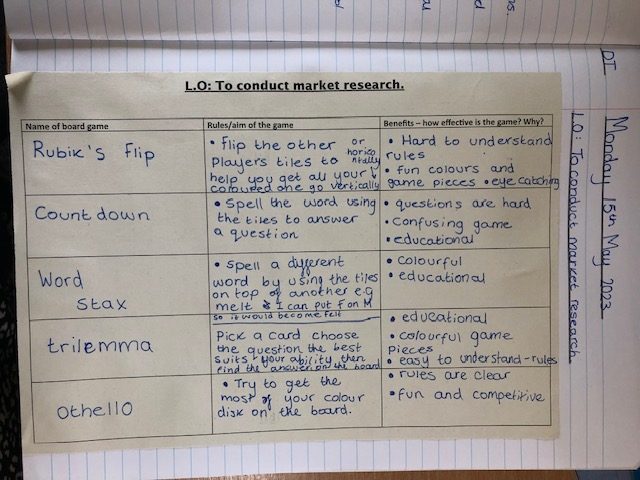 L.O: To conduct market research.
Name of board game
Rules/aim of the game
Benefits – how effective is the game? Why?
Rubik's Flip
• Flip the other or
Players tiles to horico
ntally
help you get all your
coloured one go vertically
• Hard to understand
rules
• fun colours and
game pieces • eye catching
Count down
• Spell the word using
the tiles to answer
a question
• questions are hard
• Confusing game
• educational
Word
Stax
• Spell a different
word by using the tiles
on top of another e.g
melt & I can put F on M
so it would become felt
• Colourful
• educational
trilemma
Pick a card choose
the question the best
suits your ability then
find the answer on the board
• educational
• colourful game
Pieces
• easy to understand-rules
Othello
• Try to get the
most of your colour
disk on the board.
• rules are clear
• fun and competitive
DT
Monday 15th May 2023
L.O: To conduct market research.